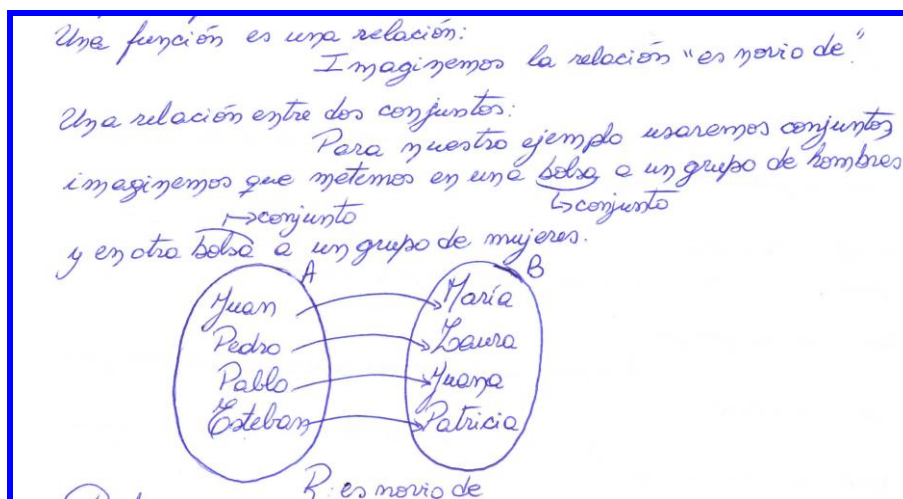 Una función es una relación:
Imaginemos la relación "es novio de".
Una relación entre dos conjuntos:
Para nuestro ejemplo usaremos conjuntos
imaginemos que metemos en una bolsa a un grupo de hombres
↳conjunto
↱conjunto
y en otra bolsa a un grupo de mujeres.
A B
Juan María
Pedro Laura
Pablo Juana
Esteban Patricia
R: es novio de